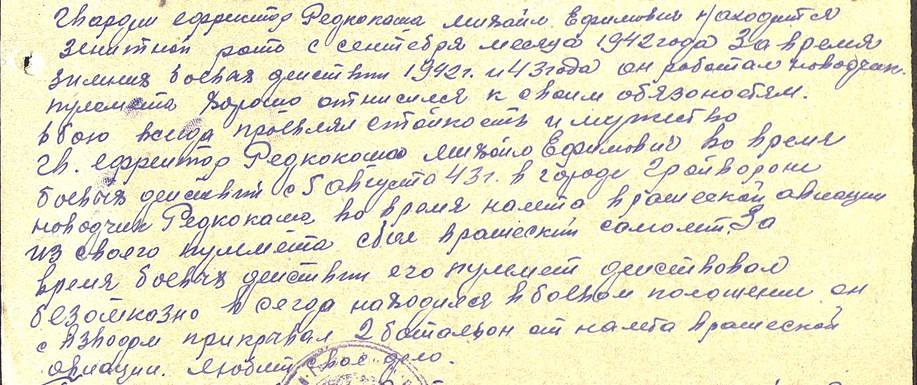 Гвардии ефрейтор Редкокаша Михайл Ефимович находится
зенитной роте с сентебря месяца 1942 года За время
зимних боевых действий 1942 г. и 43 года он работал новодчик.
пулемета хорошо отнисился к своим обязоностям.
в бою всегда проевлял стойкость и мужество
Гв. ефрейтор Редкокаша Михайл Ефимович во время
боевых действий с 5 августа 43 г. в городе Грайворон
новодчик Редкокаша во время налета вражеской авиации
из своего пулемета сбил вражеский самолет. За
время боевых действий его пулемет действовал
безотказно всегда находился в боевом положении он
с взводом прикравал 2 батальон от налета вражеской
авиации. Любит свое дело.